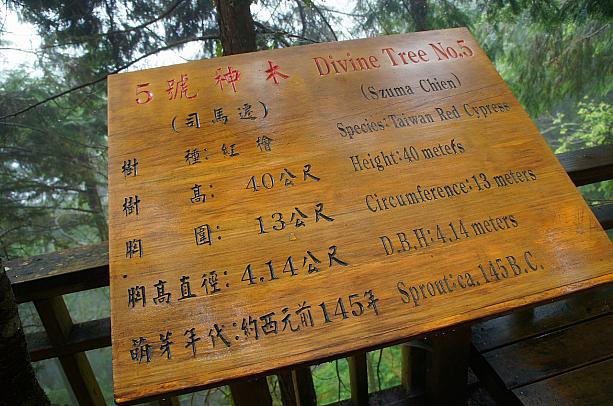 5號神木 Divine Tree No.5
(司馬遷) (Szuma Chien)
樹種：紅檜 Species: Taiwan Red Cypress
樹高：40公尺 Height: 40 meters
胸圍：13公尺 Circumference: 13 meters
胸高直徑：4.14公尺 D.B.H: 4.14 meters
萌芽年代：約西元前145年 Sprout: ca. 145 B.C.